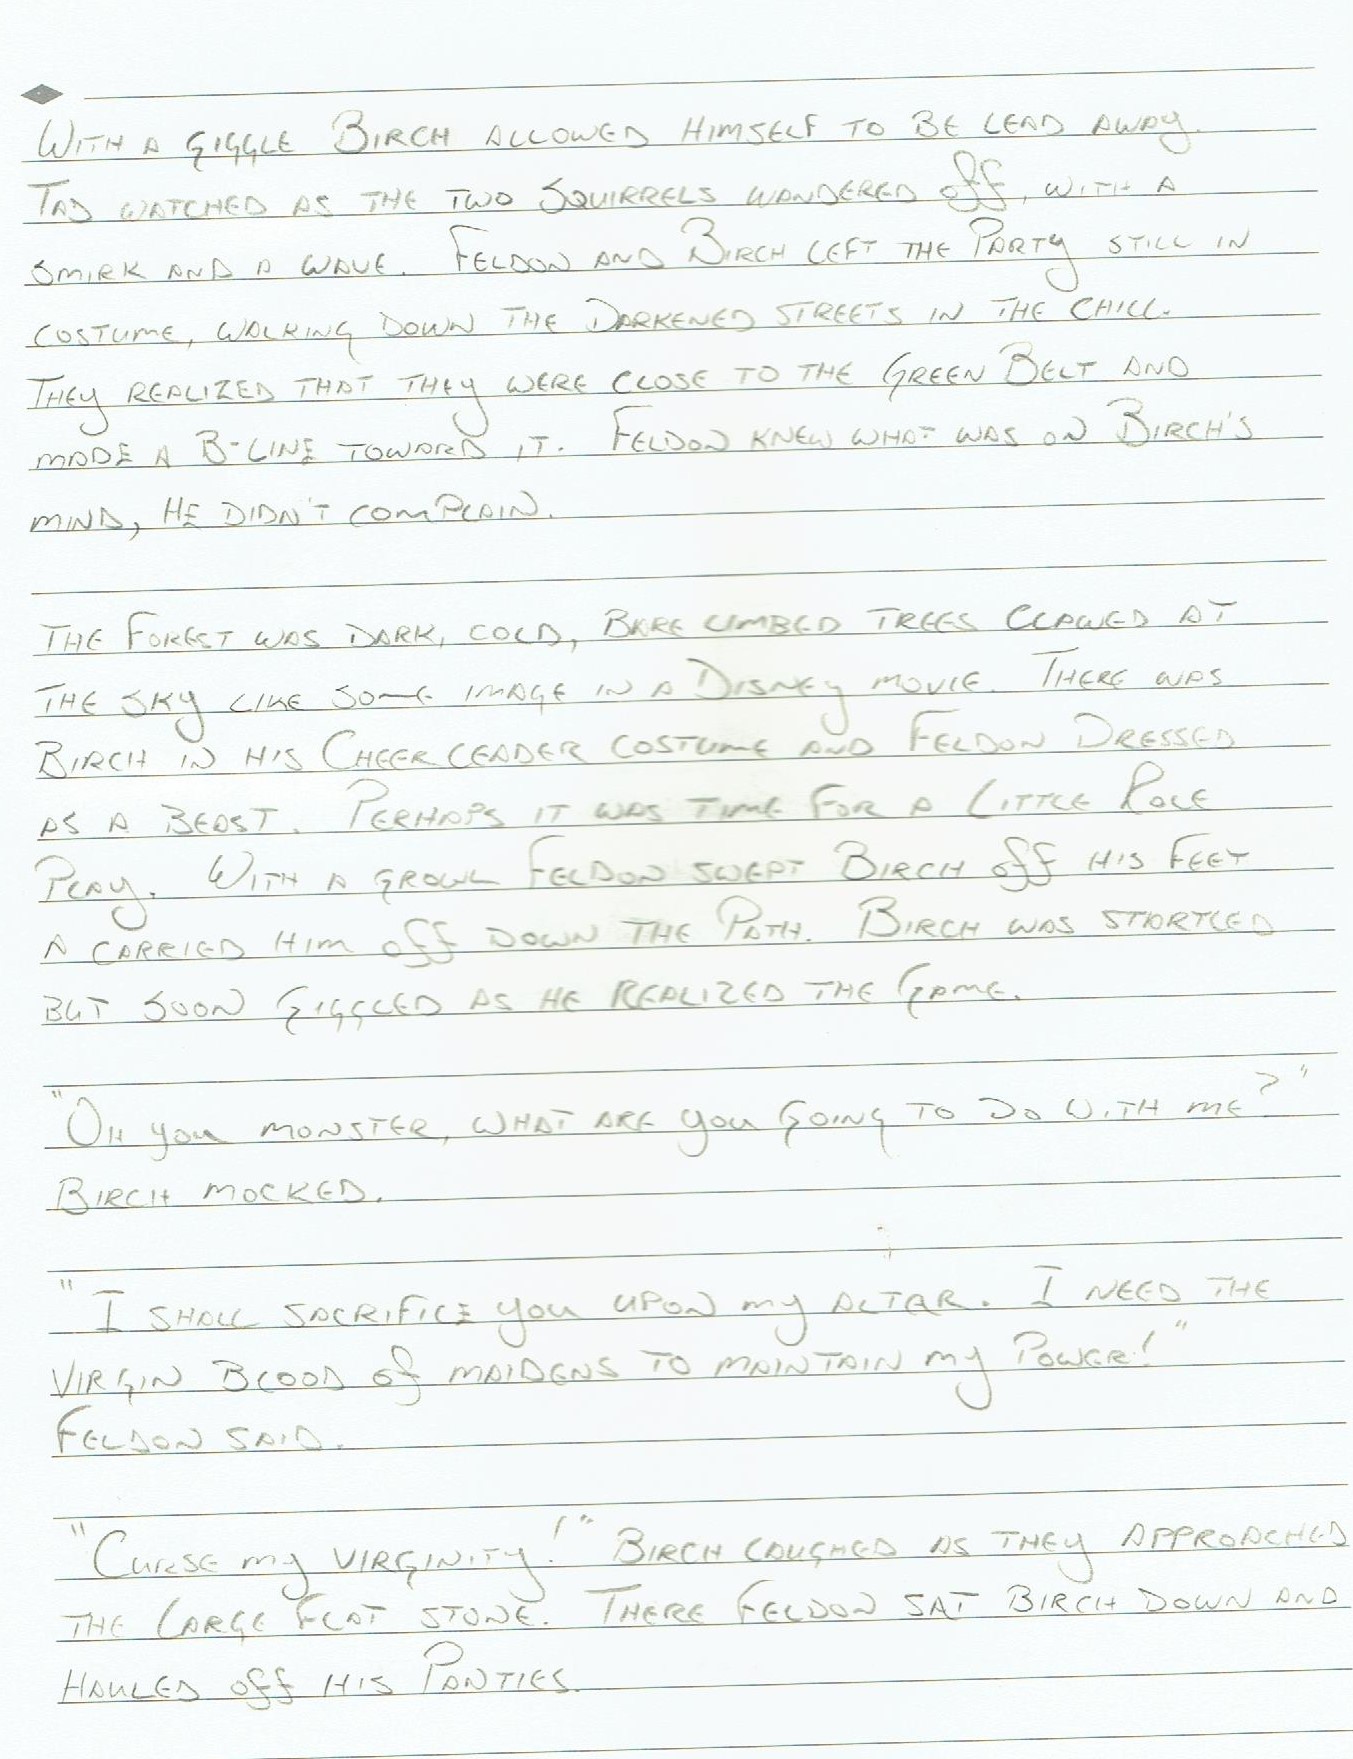 WITH A GIGGLE BIRCH ALLOWED HIMSELF TO BE LEAD AWAY.
TAD WATCHED AS THE TWO SQUIRRELS WANDERED off, WITH A
SMIRK AND A WAVE. FELDON AND BIRCH LEFT THE PARTY STILL IN
COSTUME, WALKING DOWN THE DARKENED STREETS IN THE CHILL.
THEY REALIZED THAT THEY WERE CLOSE TO THE GREEN BELT AND
MADE A B-LINE TOWARD IT. FELDON KNEW WHAT WAS ON BIRCH'S
MIND, HE DIDN'T COMPLAIN.
THE FOREST WAS DARK, COLD, BARE LIMBED TREES CLAWED AT
THE SKY LIKE SOME IMAGE IN A DISNEY MOVIE. THERE WAS
BIRCH IN HIS CHEERLEADER COSTUME AND FELDON DRESSED
AS A BEAST. PERHAPS IT WAS TIME FOR A LITTLE ROLE
PLAY. WITH A GROWL FELDON SWEPT BIRCH off HIS FEET
A CARRIED HIM off DOWN THE PATH. BIRCH WAS STARTLED
BUT SOON GIGGLED AS HE REALIZED THE GAME.
"OH you MONSTER, WHAT ARE you GOING TO DO WITH ME?"
BIRCH MOCKED.
"I SHALL SACRIFICE you UPON my ALTAR. I NEED THE
VIRGIN BLOOD of MAIDENS TO MAINTAIN my POWER!"
FELDON SAID.
"CURSE my VIRGINITY!" BIRCH LAUGHED AS THEY APPROACHED
THE LARGE FLAT STONE. THERE FELDON SAT BIRCH DOWN AND
HAULED off HIS PANTIES.